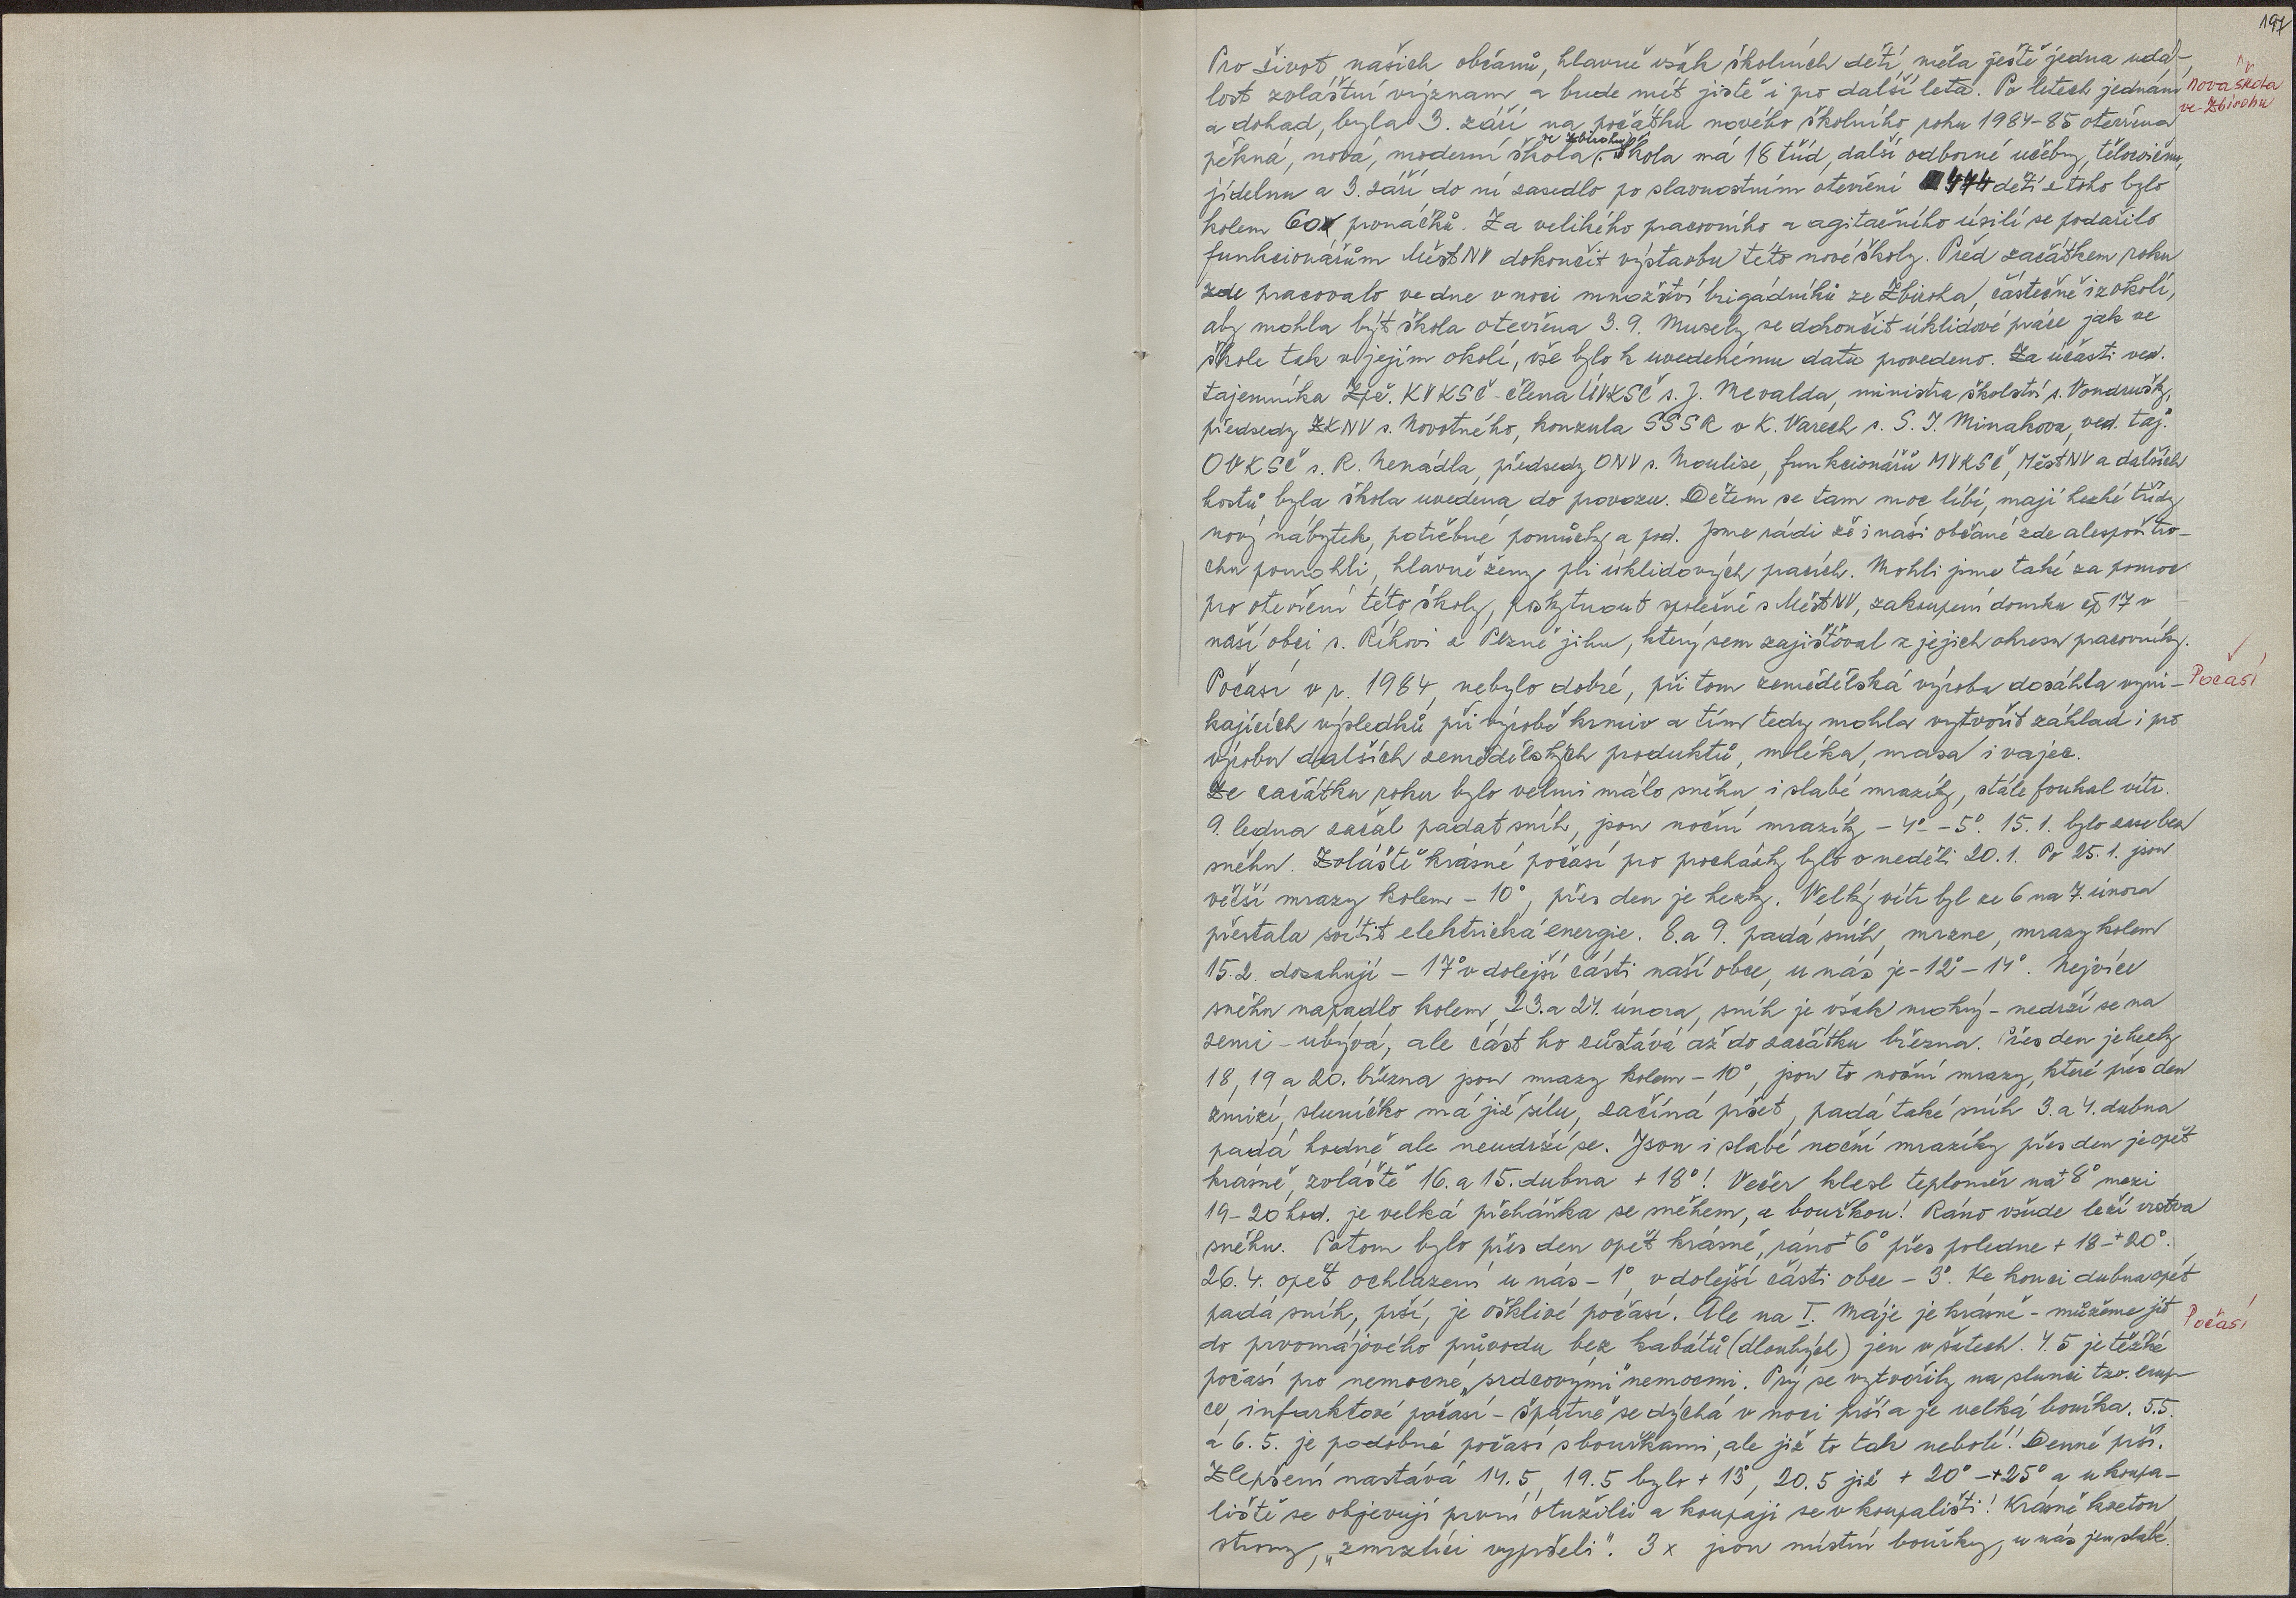 197
Pro život našich občanů, hlavně však školních dětí, měla ještě jedna udá-
lost zvláštní význam a bude mít jistě i pro další léta. Po letech jednání
Nová škola
ve Zbirohu
a dohad, byla 3. září na počátku nového školního roku 1984-85 otevřena
pěkná, nová, moderní škola ve Zbirohu. Škola má 18 tříd, další odborné učebny, tělocvičnu,
jídelnu a 3. září do ní zasedlo po slavnostním otevření 474 dětí z toho bylo
kolem 60 prvňáčků. Za velikého pracovního a agitačního úsilí se podařilo
funkcionářům MěstNV dokončit výstavbu této nové školy. Před začátkem roku
zde pracovalo ve dne v noci množství brigádníků ze Zbiroha, částečně i z okolí,
aby mohla být škola otevřena 3.9. Musely se dokončit úklidové práce jak ve
škole tak v jejím okolí, vše bylo k uvedenému datu provedeno. Za účasti ved.
tajemníka Zpč. KVKSČ - člena ÚVKSČ s. J. Mevalda, ministra školství s. Vondrušky,
předsedy ZKNV s. Novotného, konzula SSSR v K. Varech s. S. I. Minakova, ved. taj.
OVKSČ s. R. Nenádla, předsedy ONV s. Moulise, funkcionářů MVKSČ, MěstNV a dalších
hostů, byla škola uvedena do provozu. Dětem se tam moc líbí, mají hezké třídy
nový nábytek, potřebné pomůcky a pod. Jsme rádi že i naši občané zde alespoň tro-
chu pomohli, hlavně ženy při úklidových pracích. Mohli jsme také za pomoc
pro otevření této školy, poskytnout společně s MěstNV, zakoupení domku čp 17 v
naší obci s. Říhovi z Plzně jihu, který sem zajišťoval z jejich okresu pracovníky.
Počasí v r. 1984, nebylo dobré, při tom zemědělská výroba dosáhla vyni-
Počasí
kajících výsledků při výrobě krmiv a tím tedy mohla vytvořit základ i pro
výrobu dalších zemědělských produktů, mléka, masa i vajec.
Ze začátku roku bylo velmi málo sněhu i slabé mrazíky, stále foukal vítr.
9. ledna začal padat sníh, jsou noční mrazíky - 4° - 5°. 15.1. bylo zase bez
sněhu. Zvláště krásné počasí pro procházky bylo v neděli 20.1. Po 25.1. jsou
větší mrazy kolem - 10°, přes den je hezky. Velký vítr byl ze 6 na 7. února
přestala svítit elektrická energie. 8. a 9. padá sníh, mrzne, mrazy kolem
15.2. dosahují - 17° v dolejší části naší obce, u nás je - 12° - 14°. Nejvíce
sněhu napadlo kolem 23. a 24. února, sníh je však mokrý - nedrží se na
zemi - ubývá, ale část ho zůstává až do začátku března. Přes den je hezky
18, 19 a 20. března jsou mrazy kolem - 10°, jsou to noční mrazy, které přes den
zmizí, sluníčko má již sílu, začíná pršet, padá také sníh 3. a 4. dubna
padá hodně ale neudrží se. Jsou i slabé noční mrazíky přes den je opět
krásně, zvláště 16. a 15. dubna + 18°! Večer klesl teploměr na + 8° mezi
19-20 hod. je velká přeháňka se sněhem, a bouřkou! Ráno všude leží vrstva
sněhu. Potom bylo přes den opět krásně, ráno + 6° přes poledne + 18 - + 20°.
26.4. opět ochlazení u nás - 1°, v dolejší části obce - 3°. Ke konci dubna opět
padá sníh, prší, je ošklivé počasí. Ale na I. Máje je krásně - můžeme jít
Počasí
do prvomájového průvodu bez kabátů (dlouhých) jen v šatech. 4.5 je těžké
počasí pro nemocné "srdcovými" nemocemi. Prý se vytvořily na slunci tzv. erup-
ce, infarktové počasí - špatně se dýchá v noci prší a je velká bouřka. 5.5.
a 6.5. je podobné počasí s bouřkami, ale již to tak nebolí! Denně prší.
Zlepšení nastává 14.5, 19.5 bylo + 13°, 20.5 již + 20° - + 25° a u koupa-
liště se objevují první otužilci a koupají se v koupališti! Krásně kvetou
stromy, "zmrzlíci vypršeli". 3x jsou místní bouřky, u nás jen slabé.